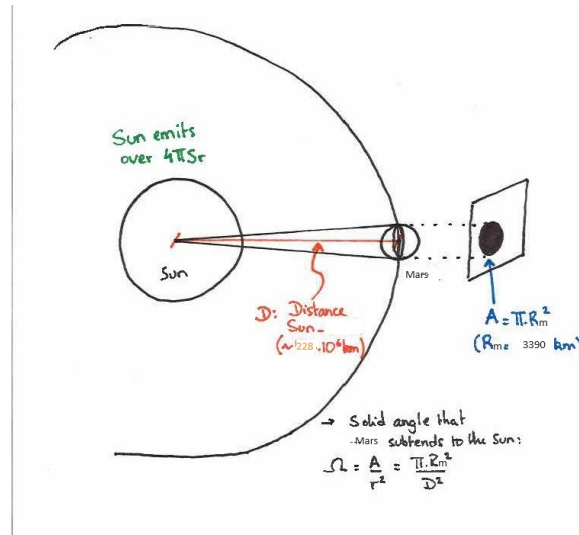 Sun emits
over 4πSr
Sun
Mars
D: Distance
Sun-
(~ 228.10⁶km)
A = π.Rm²
(Rm= 3390 km)
→ Solid angle that
-Mars subtends to the Sun:
Ω = A/r² = π.Rm²/D²